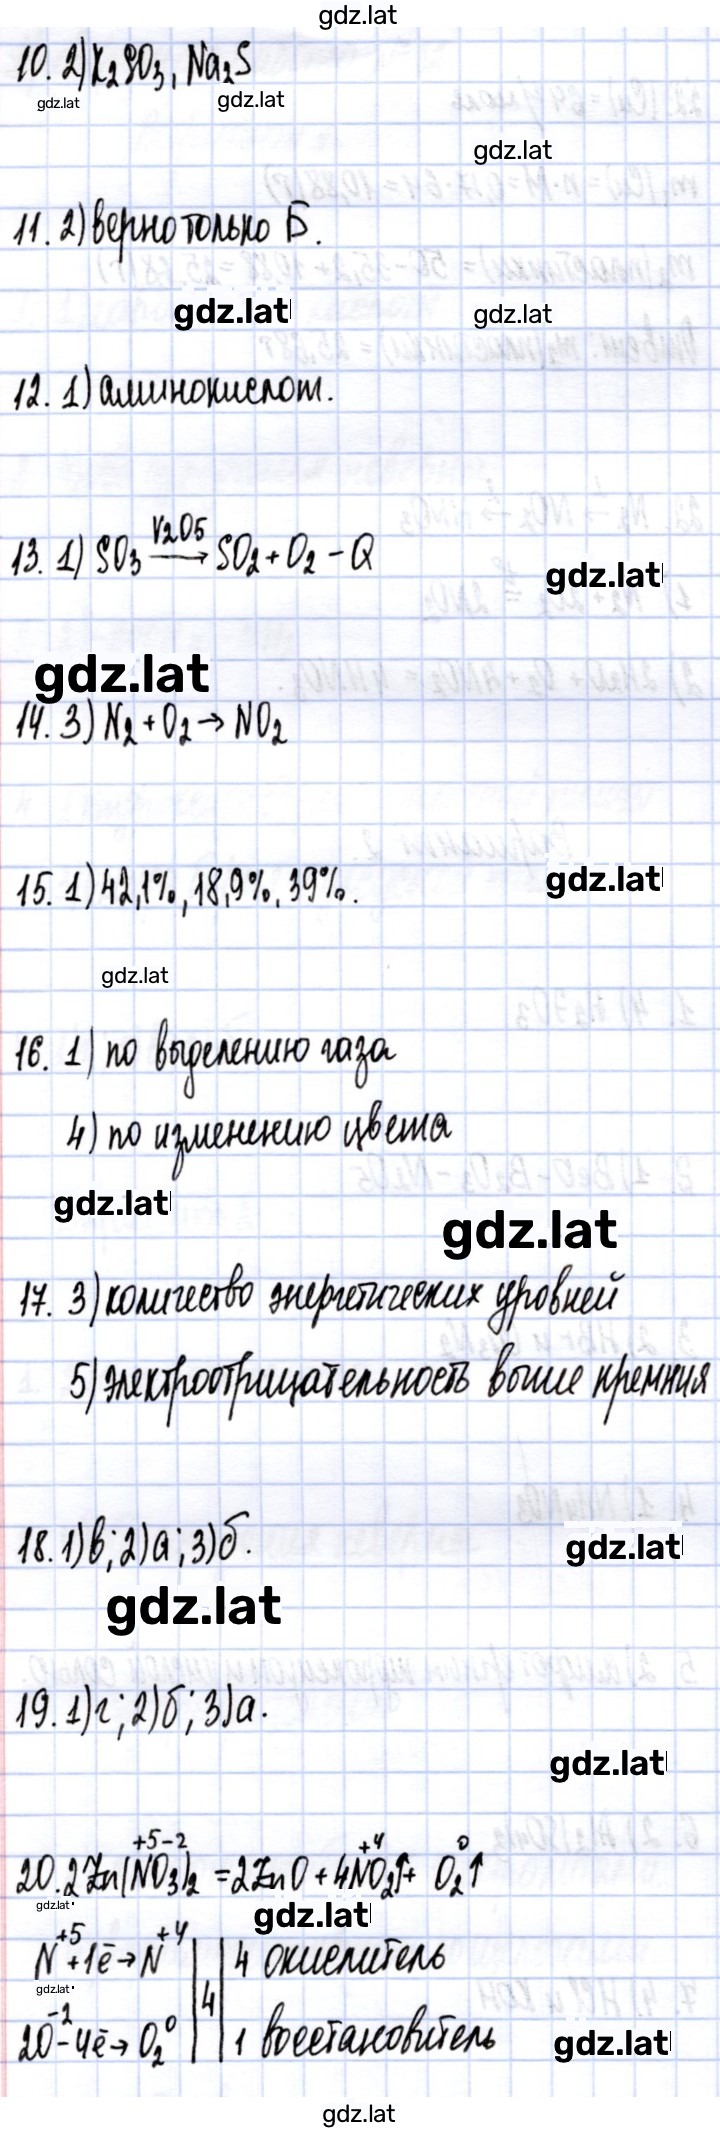 gdz.lat
10. 2) K₂SO₃, Na₂S
gdz.lat
gdz.lat
gdz.lat
11. 2) верно только Б.
gdz.lat
gdz.lat
12. 1) аминокислот.
13. 1) SO₃ V₂O5→ SO₂ + O₂ - Q
gdz.lat
gdz.lat
14. 3) N₂ + O₂ → NO₂
15. 1) 42,1%, 18,9%, 39%.
gdz.lat
gdz.lat
16. 1) по выделению газа
4) по изменению цвета
gdz.lat
gdz.lat
17. 3) количество энергетических уровней
5) электроотрицательность выше кремния
18. 1) в; 2) а; 3) б.
gdz.lat
gdz.lat
19. 1) г; 2) б; 3) а.
gdz.lat
+5 -2 +4 0
20. 2Zn(NO₃)₂ = 2ZnO + 4NO₂↑ + O₂↑
gdz.lat
gdz.lat
N⁺⁵ + 1ē → N⁺⁴ | 4 | 4 окислитель
gdz.lat
2O⁻² - 4ē → O₂⁰ | | 1 восстановитель
gdz.lat
gdz.lat